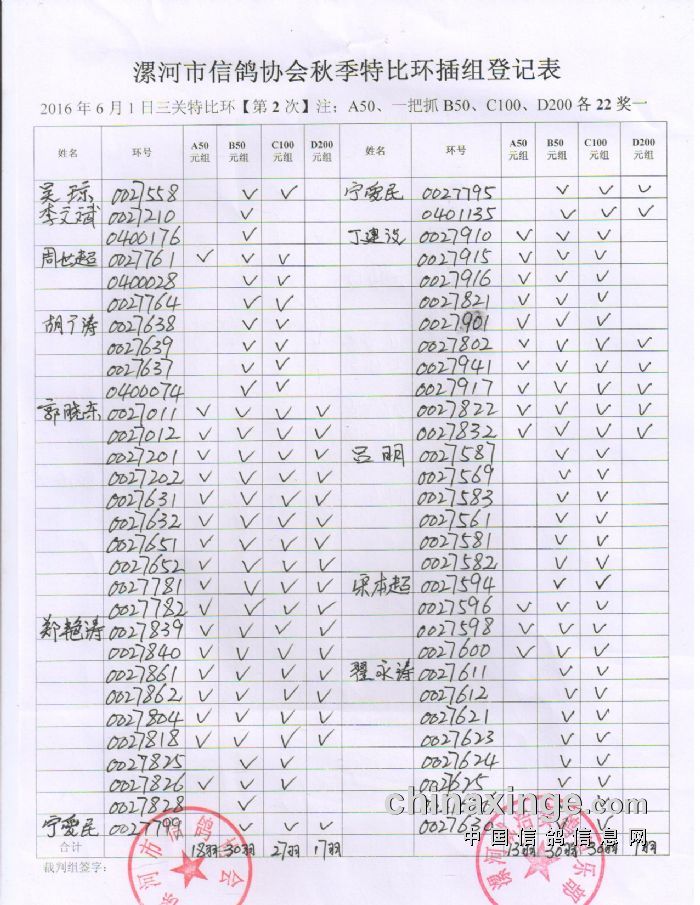 漯河市信鸽协会秋季特比环插组登记表
2016年6月1日三关特比环【第2次】注：A50、一把抓B50、C100、D200各22奖一
姓名 环号 A50元组 B50元组 C100元组 D200元组 姓名 环号 A50元组 B50元组 C100元组 D200元组
吴琼 0027558 ✓ ✓ 宁爱民 0027795 ✓ ✓ ✓
李文斌 0027210 ✓ 0401135 ✓ ✓ ✓
0400176 ✓ 丁建设 0027910 ✓ ✓ ✓
周世超 0027761 ✓ ✓ ✓ 0027915 ✓ ✓ ✓
0400028 ✓ ✓ 0027916 ✓ ✓ ✓
0027764 ✓ ✓ 0027821 ✓ ✓ ✓
胡宁涛 0027638 ✓ ✓ 0027901 ✓ ✓ ✓
0027639 ✓ ✓ 0027802 ✓ ✓ ✓ ✓
0027637 ✓ ✓ 0027941 ✓ ✓ ✓ ✓
0400074 ✓ ✓ 0027917 ✓ ✓ ✓ ✓
郭晓东 0027011 ✓ ✓ ✓ ✓ 0027822 ✓ ✓ ✓ ✓
0027012 ✓ ✓ ✓ ✓ 0027832 ✓ ✓ ✓ ✓
0027201 ✓ ✓ ✓ ✓ 吕明 0027587 ✓ ✓
0027202 ✓ ✓ ✓ ✓ 0027569 ✓ ✓
0027631 ✓ ✓ ✓ ✓ 0027583 ✓ ✓
0027632 ✓ ✓ ✓ ✓ 0027561 ✓ ✓
0027651 ✓ ✓ ✓ ✓ 0027581 ✓ ✓
0027652 ✓ ✓ ✓ ✓ 0027582 ✓ ✓
0027781 ✓ ✓ ✓ ✓ 宋本超 0027594 ✓ ✓
0027782 ✓ ✓ ✓ ✓ 0027596 ✓ ✓ ✓
郑艳涛 0027839 ✓ ✓ ✓ ✓ 0027598 ✓ ✓ ✓
0027840 ✓ ✓ ✓ ✓ 0027600 ✓ ✓ ✓
0027861 ✓ ✓ ✓ ✓ 翟永涛 0027611 ✓ ✓
0027862 ✓ ✓ ✓ ✓ 0027612 ✓ ✓
0027804 ✓ ✓ ✓ ✓ 0027621 ✓ ✓
0027818 ✓ ✓ ✓ ✓ 0027623 ✓ ✓
0027825 ✓ ✓ 0027624 ✓ ✓
0027826 ✓ ✓ ✓ 0027625 ✓ ✓
0027828 ✓
宁爱民 0027799 ✓ ✓ ✓ 002763 ✓ ✓
合计 18羽 30羽 27羽 17羽 13羽 30羽 30羽 7羽
裁判组签字：
chinaxinge.com
中国信鸽信息网